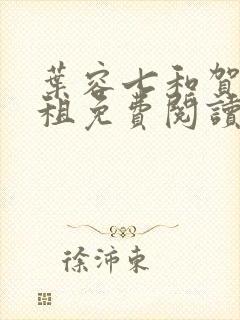 葉容七和賀
租免費閱讀
徐沛東